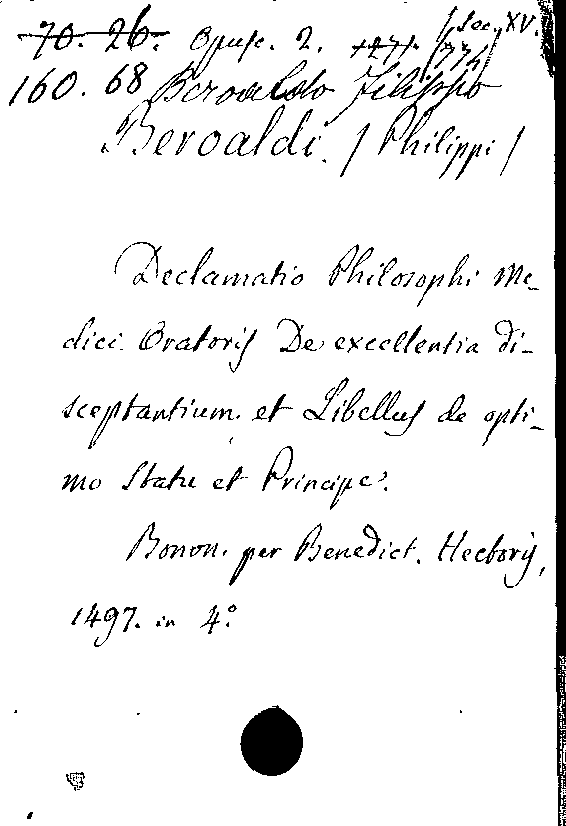 70. 26. Opusc. 2. / Sec. XV.
160. 68 Beroaldo Filippo
Beroaldi. / Philippi /
Declamatio Philosophi Me-
dici Oratoris De excellentia di-
sceptantium. et Libellus de opti-
mo Statu et Principe.
Bonon. per Benedict. Hectoris,
1497. in 4°.